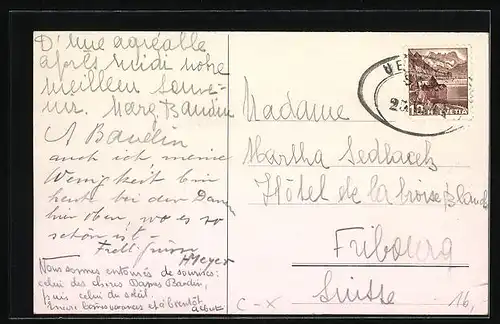 D'une agréable
après midi notre
meilleur souve-
nir. Marg. Baudin
A Baudin
auch ich, meine
Wenigkeit bin
heute bei den Damen
hier oben, wo es so
schön ist -
HMeyer
Nous sommes entourés de sourires:
celui des chères Dames Baudin,
puis celui du soleil.
et à bientôt
Madame
Martha Sedlacek
Hôtel de la Croix Blanche
Fribourg
Suisse
C - X
16,
HELVETIA